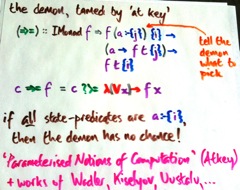 the demon, tamed by 'at key'
(⇒=) :: IMonad f ⇒ f (a :={j}) {i} →
(a → f t {j}) →
f t {i}
tell the
demon
what to
pick
c ⇒= f = c ?>= λ(V x) → f x
if all state-predicates are a:={i},
then the demon has no chance!
"Parameterised Notions of Computation" (Atkey)
+ works of Wadler, Kiselyov, Uustalu, ...